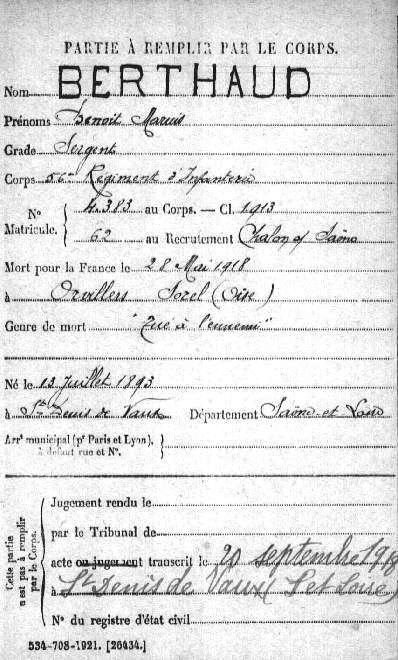 PARTIE À REMPLIR PAR LE CORPS.
Nom BERTHAUD
Prénoms Benoit Marius
Grade Sergent
Corps 56e Régiment d'Infanterie
N° Matricule. { 4.383 au Corps. — Cl. 1913
62 au Recrutement Chalon s/ Saône
Mort pour la France le 28 Mai 1918
à Orvillers Sorel (Oise)
Genre de mort "Tué à l'ennemi"
Né le 13 Juillet 1893
à St Denis de Vaux Département Saône et Loire
Arrt municipal (pr Paris et Lyon),
à défaut rue et N°.
Cette partie n'est pas à remplir par le Corps.
Jugement rendu le
par le Tribunal de
acte ou jugement transcrit le 20 septembre 1918
à St Denis de Vaux (S et Loire)
N° du registre d'état civil
534-708-1921. [26434.]